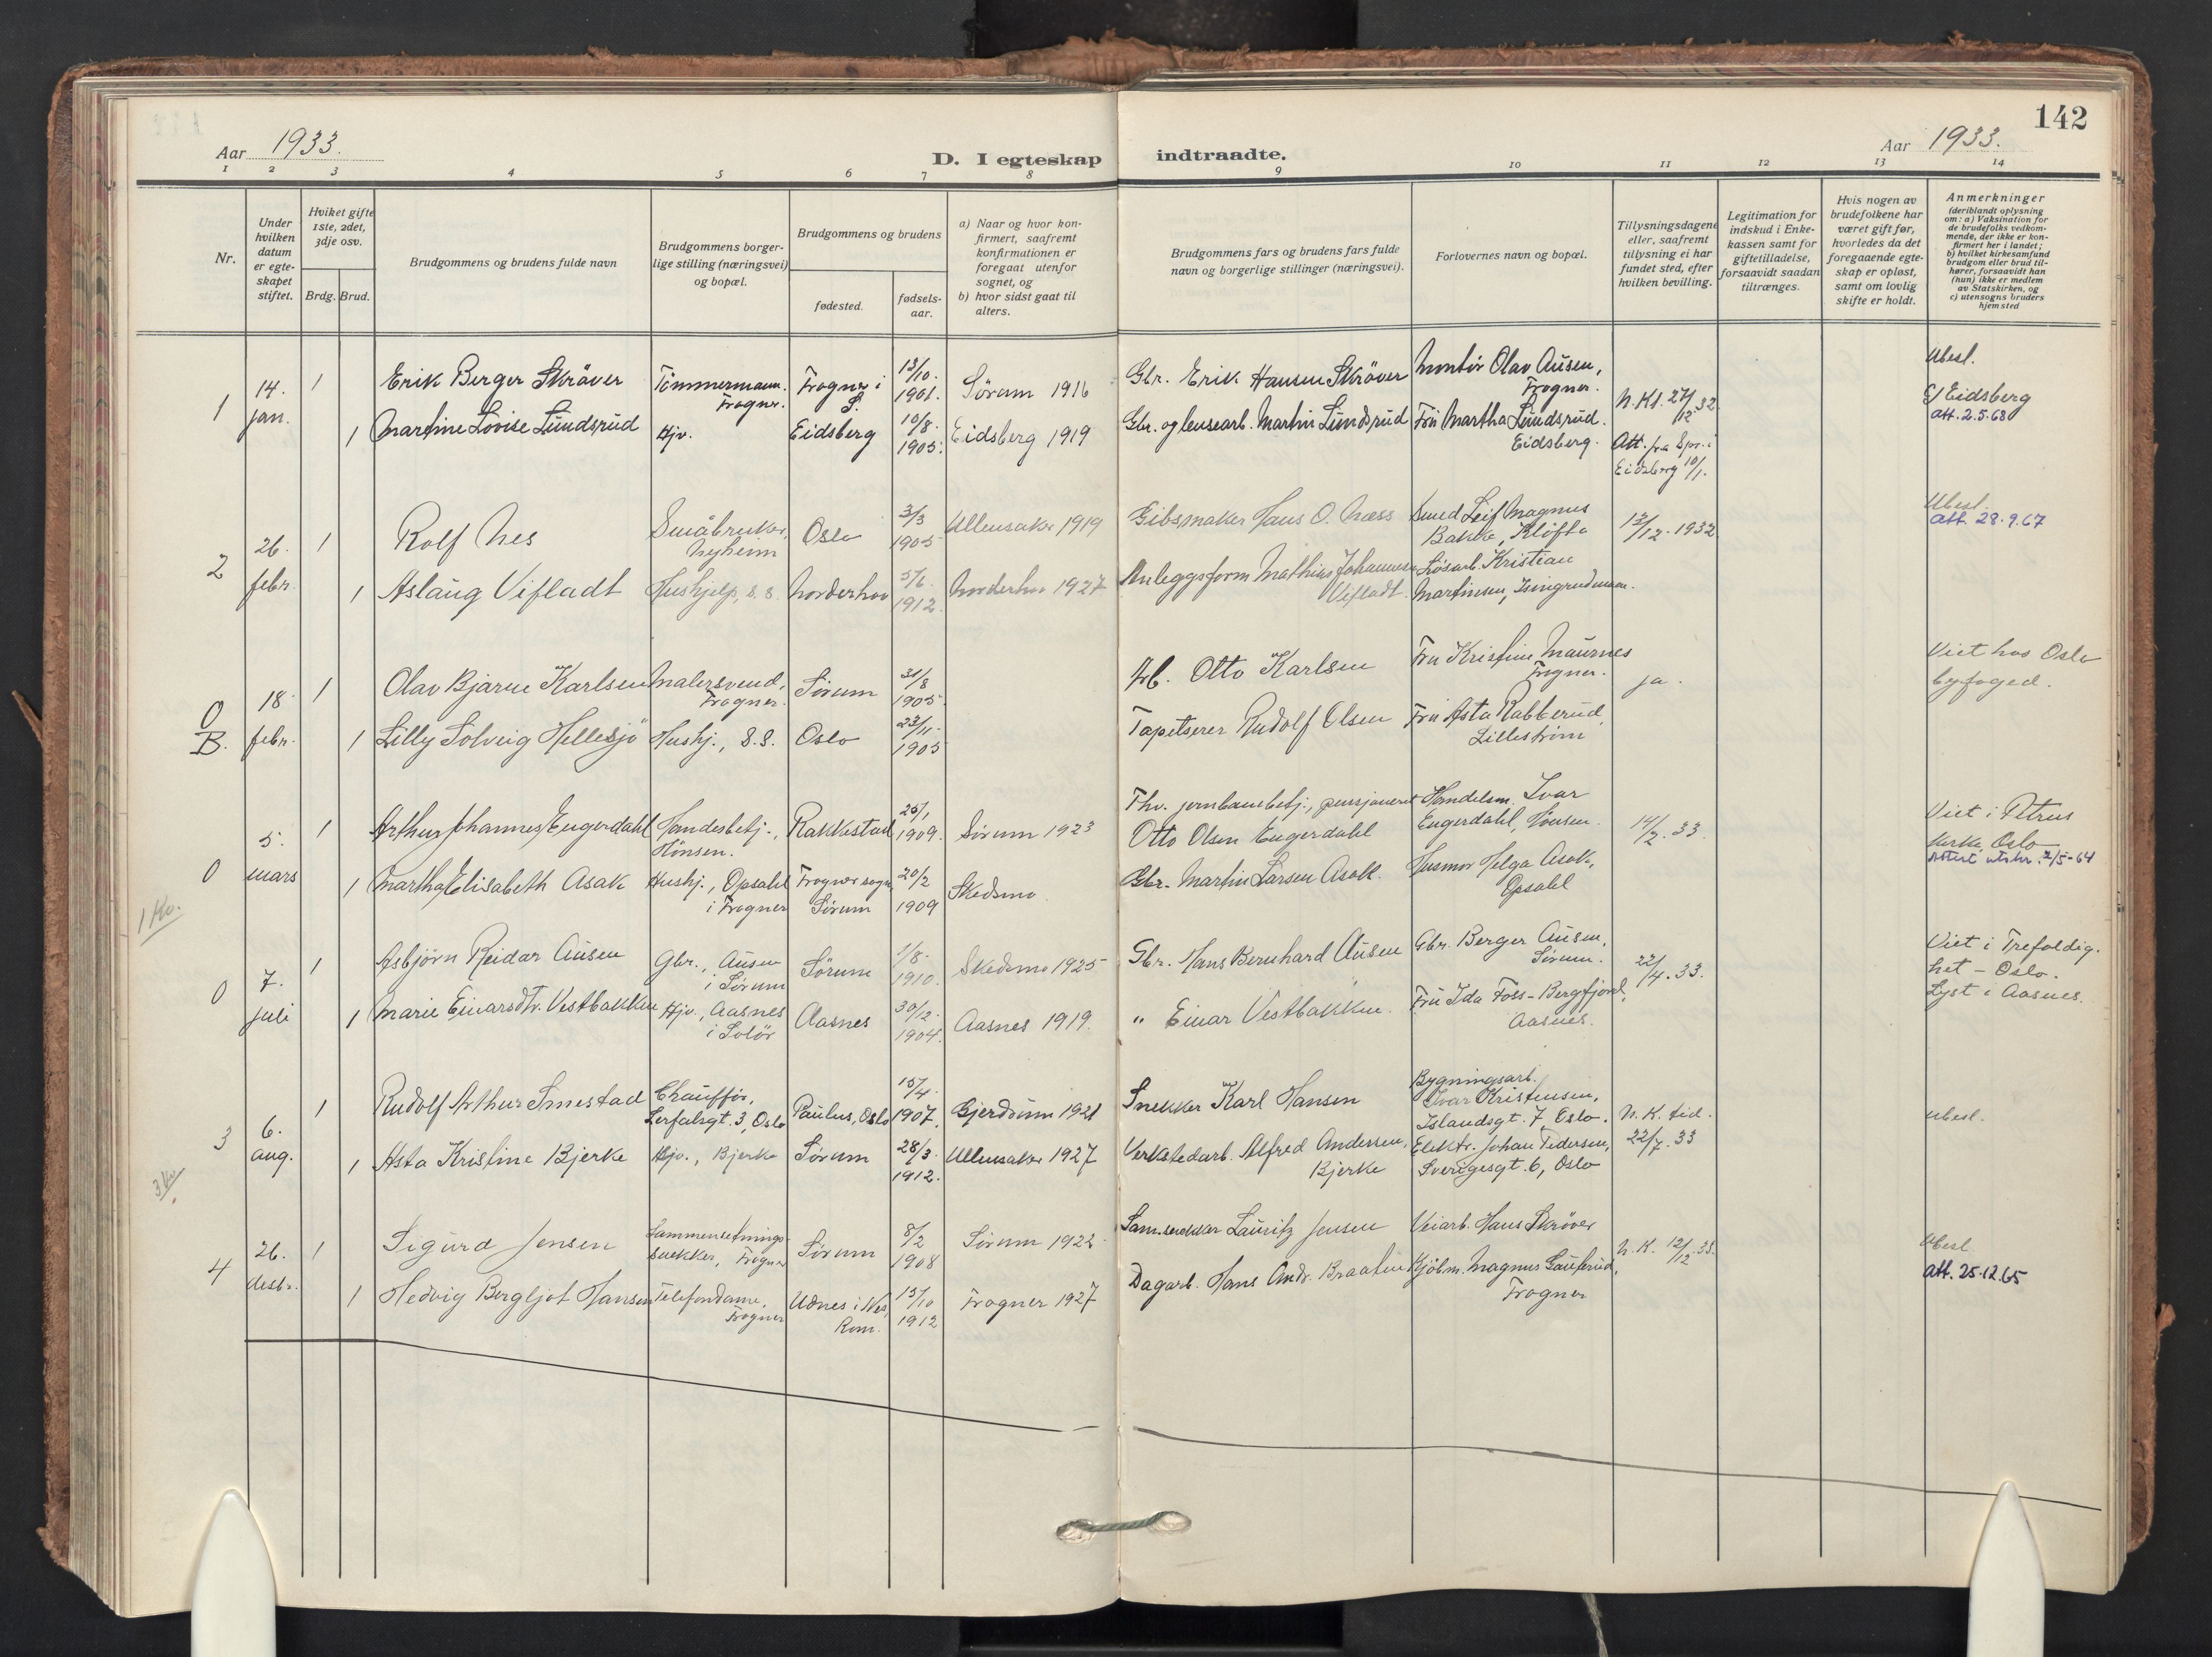 142
Aar 1933.
D. I egteskap indtraadte.
Aar 1933.
1 2 3 4 5 6 7 8 9 10 11 12 13 14
Nr.
Under
hvilken
datum
er egte-
skapet
stiftet.
Hviket gifte
1ste, 2det,
3dje osv.
Brdg. Brud.
Brudgommens og brudens fulde navn
Brudgommens borger-
lige stilling (næringsvei)
og bopæl.
Brudgommens og brudens
fødested.
fødsels-
aar.
a) Naar og hvor kon-
firmert, saafremt
konfirmationen er
foregaat utenfor
sognet, og
b) hvor sidst gaat til
alters.
Brudgommens fars og brudens fars fulde
navn og borgerlige stillinger (næringsvei).
Forlovernes navn og bopæl.
Tillysningsdagene
eller, saafremt
tillysning ei har
fundet sted, efter
hvilken bevilling.
Legitimation for
indskud i Enke-
kassen samt for
giftetilladelse,
forsaavidt saadan
tiltrænges.
Hvis nogen av
brudefolkene har
været gift før,
hvorledes da det
foregaaende egte-
skap er opløst,
samt om lovlig
skifte er holdt.
Anmerkninger
(deriblandt oplysning
om: a) Vaksination for
de brudefolks vedkom-
mende, der ikke er kon-
firmert her i landet;
b) hvilket kirkesamfund
brudgom eller brud til-
hører, forsaavidt han
(hun) ikke er medlem
av Statskirken, og
c) utensogns bruders
hjemsted
1
14.
jan.
1
Erik Berger Skråver
Tömmermann.
Frogner.
Frogner i
S.
12/10.
1901.
Sørum 1916
Gbr. Erik Hansen Skråver
Montör Olav Ausen,
Frogner.
N.Kl. 27/12 32.
Ubesl.
1
Martine Lovise Lundsrud
Hjv.
Eidsberg
10/8.
1905.
Eidsberg 1919
Gbr. og lensearb. Martin Lundsrud
Fru Martha Lundsrud.
Eidsberg.
Att. fra Spr. i
Eidsberg 10/1.
c/ Eidsberg
att. 2.5.68
2
26.
febr.
1
Rolf Nes
Småbruker,
Nyheim
Oslo
3/3
1905
Ullensaker 1919
Gibsmaker Hans O. Næss
Smed Leif Magnus
Bakke, Kløfta
12/12. 1932
Ubesl.
att. 28.9.67
1
Aslaug Vifladt
Hushjelp, s.s.
Norderhov
5/6.
1912.
Norderhov 1927
Anleggsform Mathias Johannesen
Vifladt.
Løsarb. Kristian
Martinsen, Isingrudmoen.
0
B.
18.
febr.
1
Olav Bjarne Karlsen
Malersvend,
Frogner.
Sørum
31/8
1905.
Arb. Otto Karlsen
Fru Kristine Maurnes
Frogner.
ja.
Viet hos Oslo
byfoged.
1
Lilly Solveig Hellesjö
Hushj., s.s.
Oslo
23/11.
1905
Tapetserer Rudolf Olsen
Fru Asta Rabberud,
Lillestrøm
0
5.
mars
1
Arthur Johannes Engerdahl
Handesbetj.,
Hönsen.
Rakkestad
25/1
1909.
Sørum 1923
Fhv. jernbanebetj., pensjonert
Otto Olsen Engerdahl
Handelsm. Ivar
Engerdahl, Hönsen.
14/2. 33.
Viet i Petrus
Kirke, Oslo
Attest utskr. 2/5-64
1
Martha Elisabeth Asak
Hushj., Opsahl
i Frogner
Frogner sogn,
Sørum
20/2
1909
Skedsmo.
Gbr. Martin Larsen Asak.
Husmor Helga Asak,
Opsahl
1 Kv.
0
7.
juli
1
Asbjörn Reidar Ausen
Gbr., Ausen
i Sørum
Sörum
1/8.
1910.
Skedsmo 1925
Gbr. Hans Bernhard Ausen
Gbr. Berger Ausen,
Sørum.
22/4. 33.
Viet i Trefoldig.
het - Oslo.
Lyst i Aasnes.
1
Marie Einarsdtr. Vestbakken
Hjv., Aasnes
i Solör
Aasnes
30/12.
1904.
Aasnes 1919.
" Einar Vestbakken.
Fru Ida Foss-Bergfjord,
Aasnes.
3
6.
aug.
1
Rudolf Arthur Smestad
Chauffør,
Serfalsgt. 3, Oslo
Paulus, Oslo
15/4.
1907.
Gjerdrum 1921
Snekker Karl Hansen
Bygningsarb.
Ivar Kristensen,
Islandsgt. 7, Oslo.
N.K. tid.
22/7. 33
Ubesl.
1
Asta Kristine Bjerke
Hjv., Bjerke
Sörum
28/3
1912.
Ullensaker 1927
Verkstedarb. Alfred Andersen,
Bjerke
Elektr. Johan Pedersen,
Sverigesgt. 6, Oslo
3 Kv.
4
26.
desbr.
1
Sigurd Jensen
Sammensetnings-
snekker, Frogner
Sørum
8/2
1908
Sørum 1922
Sam.snekker Lauritz Jensen
Veiarb. Hans Skrøver
N.K. 12/12. 33.
Ubesl.
att. 25.12.65
1
Hedvig Bergljot Hansen
Telefondame,
Frogner
Udnes i Nes,
Rom.
15/10
1912
Frogner 1927
Dagarb. Hans Andr. Braaten
Kjölm. Magnus Gauterud,
Frogner